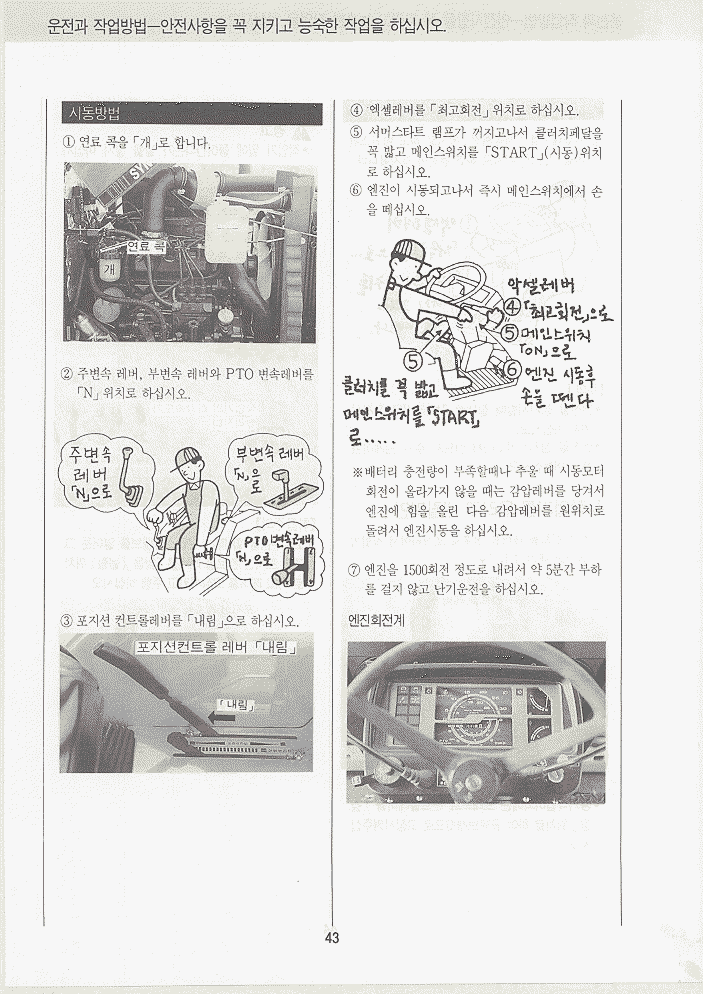 운전과 작업방법—안전사항을 꼭 지키고 능숙한 작업을 하십시오.
시동방법
① 연료 콕을 「개」로 합니다.
연료 콕
개
② 주변속 레버, 부변속 레버와 PTO 변속레버를
「N」 위치로 하십시오.
주변속
레버
「N」으로
부변속 레버
「N」으
로
PTO변속레버
「N」으로
③ 포지션 컨트롤레버를 「내림」으로 하십시오.
포지션컨트롤 레버 「내림」
「내림」
④ 엑셀레버를 「최고회전」 위치로 하십시오.
⑤ 서머스타트 램프가 꺼지고나서 클러치페달을
꼭 밟고 메인스위치를 「START」(시동)위치
로 하십시오.
⑥ 엔진이 시동되고나서 즉시 메인스위치에서 손
을 떼십시오.
악셀레버
④「최고회전」으로
⑤메인스위치
「ON」으로
⑥엔진 시동후
손을 뗀다
⑤
클러치를 꼭 밟고
메인스위치를 「START」
로.....
※배터리 충전량이 부족할때나 추울 때 시동모터
회전이 올라가지 않을 때는 감압레버를 당겨서
엔진에 힘을 올린 다음 감압레버를 원위치로
돌려서 엔진시동을 하십시오.
⑦ 엔진을 1500회전 정도로 내려서 약 5분간 부하
를 걸지 않고 난기운전을 하십시오.
엔진회전계
43